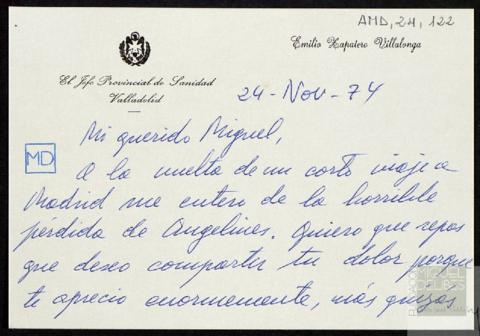 AMD, 24, 122
Emilio Zapatero Villalonga
El Jefe Provincial de Sanidad
Valladolid
24-Nov-74
Mi querido Miguel,
MD
A la vuelta de un corto viaje a
Madrid me entero de la horrible
pérdida de Angelines. Quiero que sepas
que deseo compartir tu dolor porque
te aprecio enormemente, más quizás
MIGUEL
DELIBES